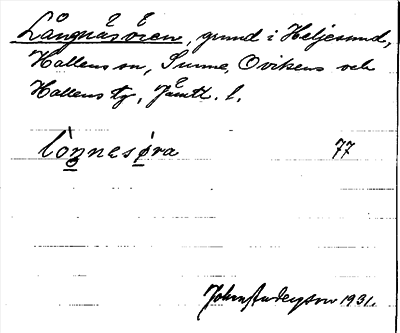 Långnäsören, grund i Heljesund,
Hallens sn, Sunne, Ovikens och
Hallens tg, Jämtl. l.
lo̠nnesø̠ra 77
John Anderson 1931.